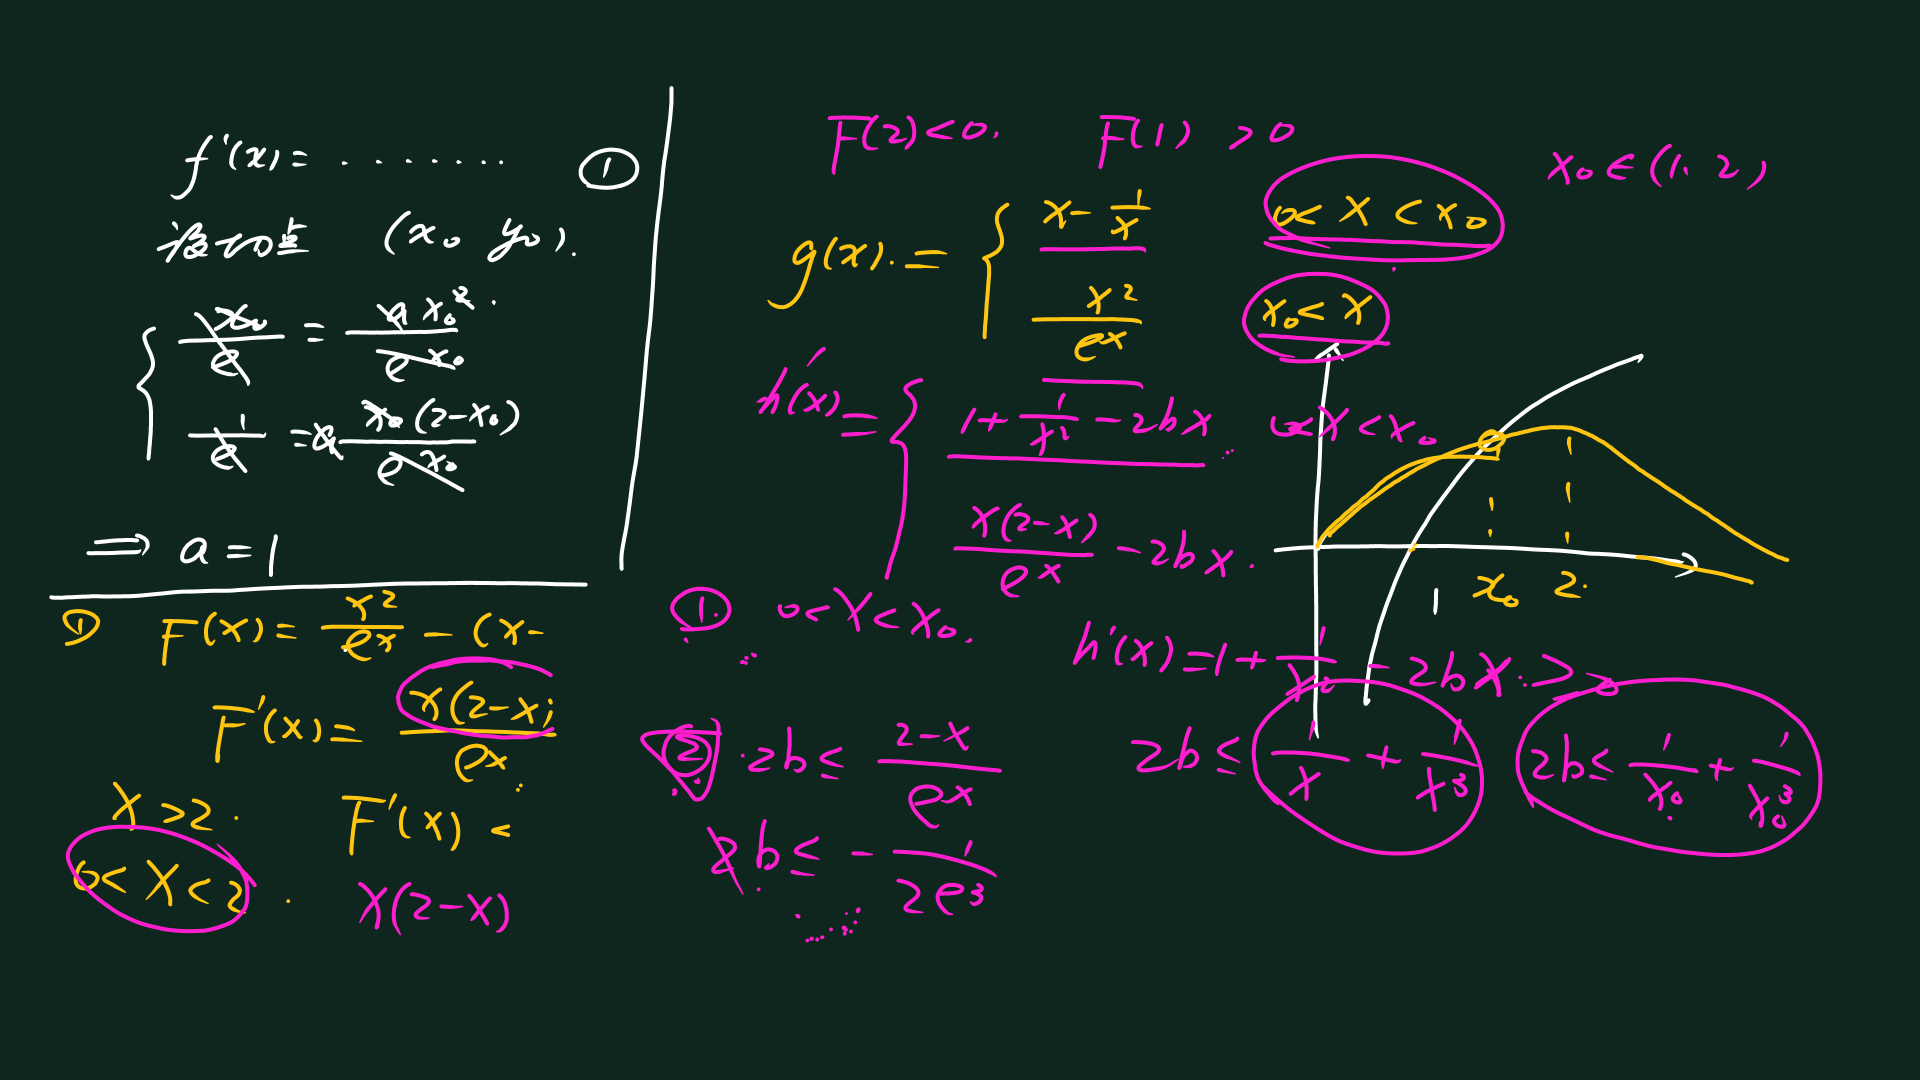 f'(x) = ........ ①
设切点 (x₀ y₀).
x₀/e = a x₀²/e^x₀
1/e = a x₀(2-x₀)/e^x₀
⟹ a = 1
① F(x) = x²/e^x - (x-
F'(x) = x(2-x)/e^x
x > 2. F'(x) <
0 < x < 2. x(2-x)
F(2) < 0. F(1) > 0
x₀ ∈ (1, 2)
g(x) = { x - 1/x 0 < x < x₀
x²/e^x x₀ < x
h'(x) = { 1 + 1/x² - 2bx 0 < x < x₀
x(2-x)/e^x - 2bx.
1 x₀ 2
① 0 < x < x₀. h'(x) = 1 + 1/x² - 2bx. ≥ 0
② 2b ≤ (2-x)/e^x
2b ≤ 1/x + 1/x³ 2b ≤ 1/x₀ + 1/x₀³
2b ≤ - 1/2e³